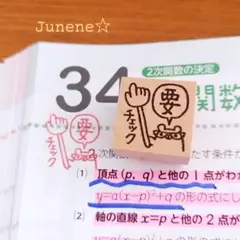 Junene☆
34
2次関数の決定
関数
要
チェック
要
チェック
次関数
たす条件か
(1) 頂点 (p, q) と他の1点がわ
y=a(x-p)²+q の形の式にし
(2) 軸の直線 x=p と他の2点か